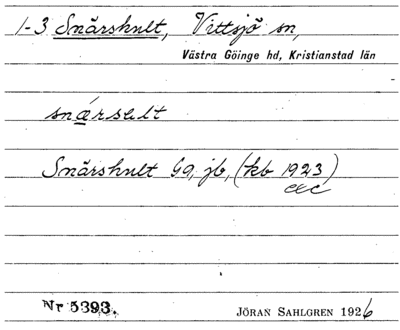 1-3 Snärshult, Vittsjö sn,
Västra Göinge hd, Kristianstad län
Snärshult G9, jb, (kb 1923)
etc
Nr 5393.
JÖRAN SAHLGREN 1926